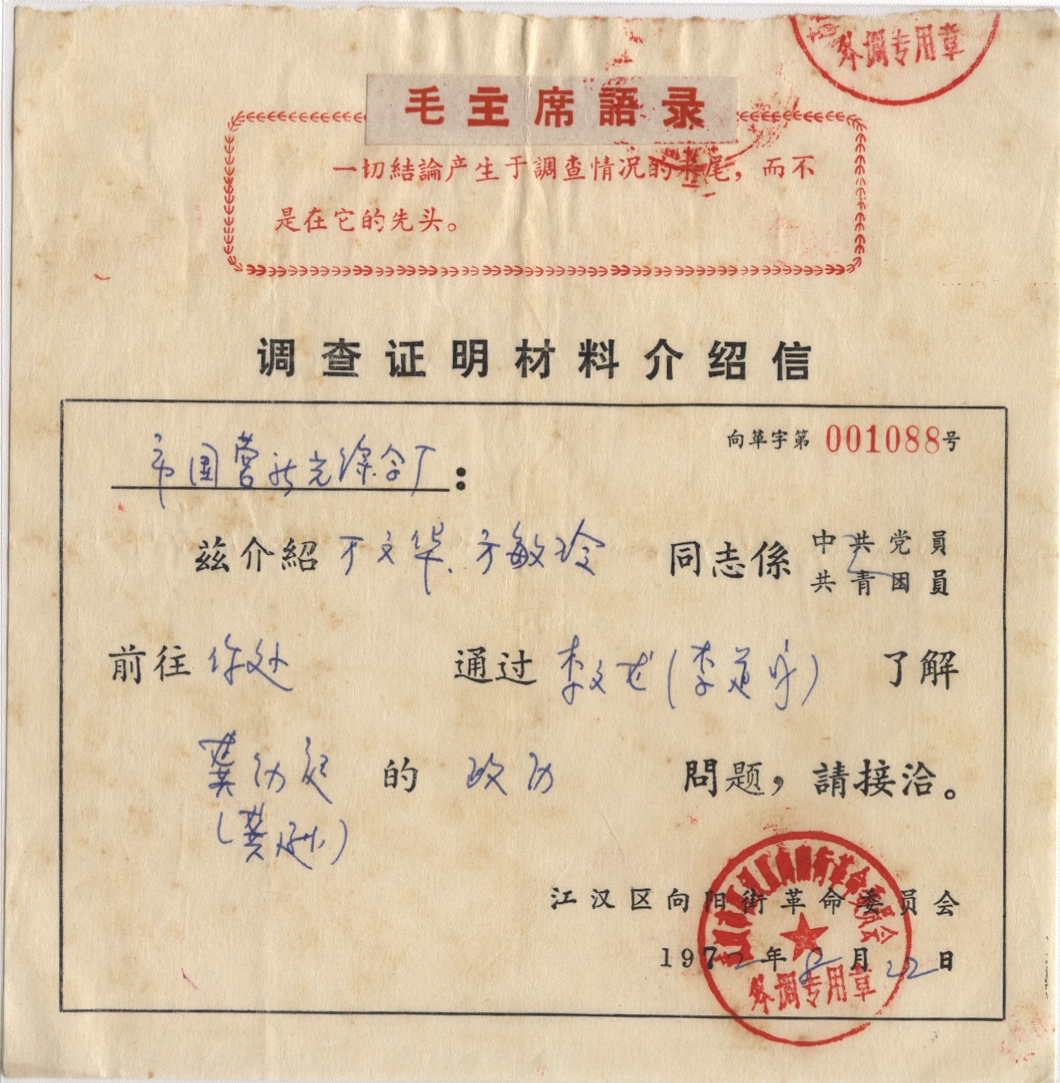 外调专用章
毛主席語录
一切結論产生于調查情况的末尾，而不
是在它的先头。
调查证明材料介绍信
向革字第 001088号
市国营新光综合厂：
兹介紹 万文华、方敏玲 同志係 中共党員
共青团員
前往 你处 通过 李文龙（李 ） 了解
龚 的 政历 問题，請接洽。
（龚 ）
江汉区向阳街革命委员会
1972年8月22日
外调专用章